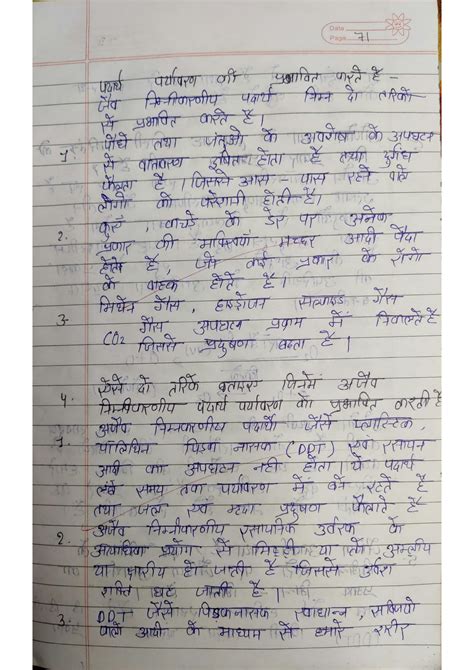 Date
Page 71
पदार्थ पर्यावरण को प्रभावित करते है -
जैव निम्नीकरणीय पदार्थ निम्न दो तरिको
से प्रभावित करते है।
1. पौधे तथा जंतुओ के अवशेषो के अपघटन
से वातावरण दुषित होता है तथा दुर्गंध
फैलता है। जिससे आस - पास रहने वाले
लोगो को परेशानी होती है।
2. कुड़े, कचड़े के ढेर पर अनेक
प्रकार की मक्खियां मच्छर आदी पैदा
होते है, जो कई प्रकार के रोगो
के वाहक होते है
3. मिथेन गैस, हाइड्रोजन सल्फाइड गैस
CO2 गैस अपघटन प्रक्रम में निकालते है
जिससे प्रदुषण बढता है।
4. ऐसे दो तरिके बताइए जिनमें अजैव
निम्नीकरणीय पदार्थ पर्यावरण को प्रभावित करती है
1. अजैव निम्नकरणीय पदार्थो जैसे प्लास्टिक,
पॉलिथिन पिड़क नासक (DDT) एवं रसायन
आदी का अपघटन नही होता। ये पदार्थ
लंबे समय तक पर्यावरण में बने रहते है
तथा जल एवं मृदा प्रदुषण फैलाते है
2. अजैव निम्नीकरणीय रसायनिक उर्वरक के
अत्याधिक प्रयोग से मिट्टी या तो अम्लीय
या क्षारीय हो जाती है जिससे उर्वरा
शक्ति घट जाती है।
3. DDT जैसे पिड़कनासक खाधान्न, सब्जियो
फलो आदी के माध्यम से हमारे शरीर